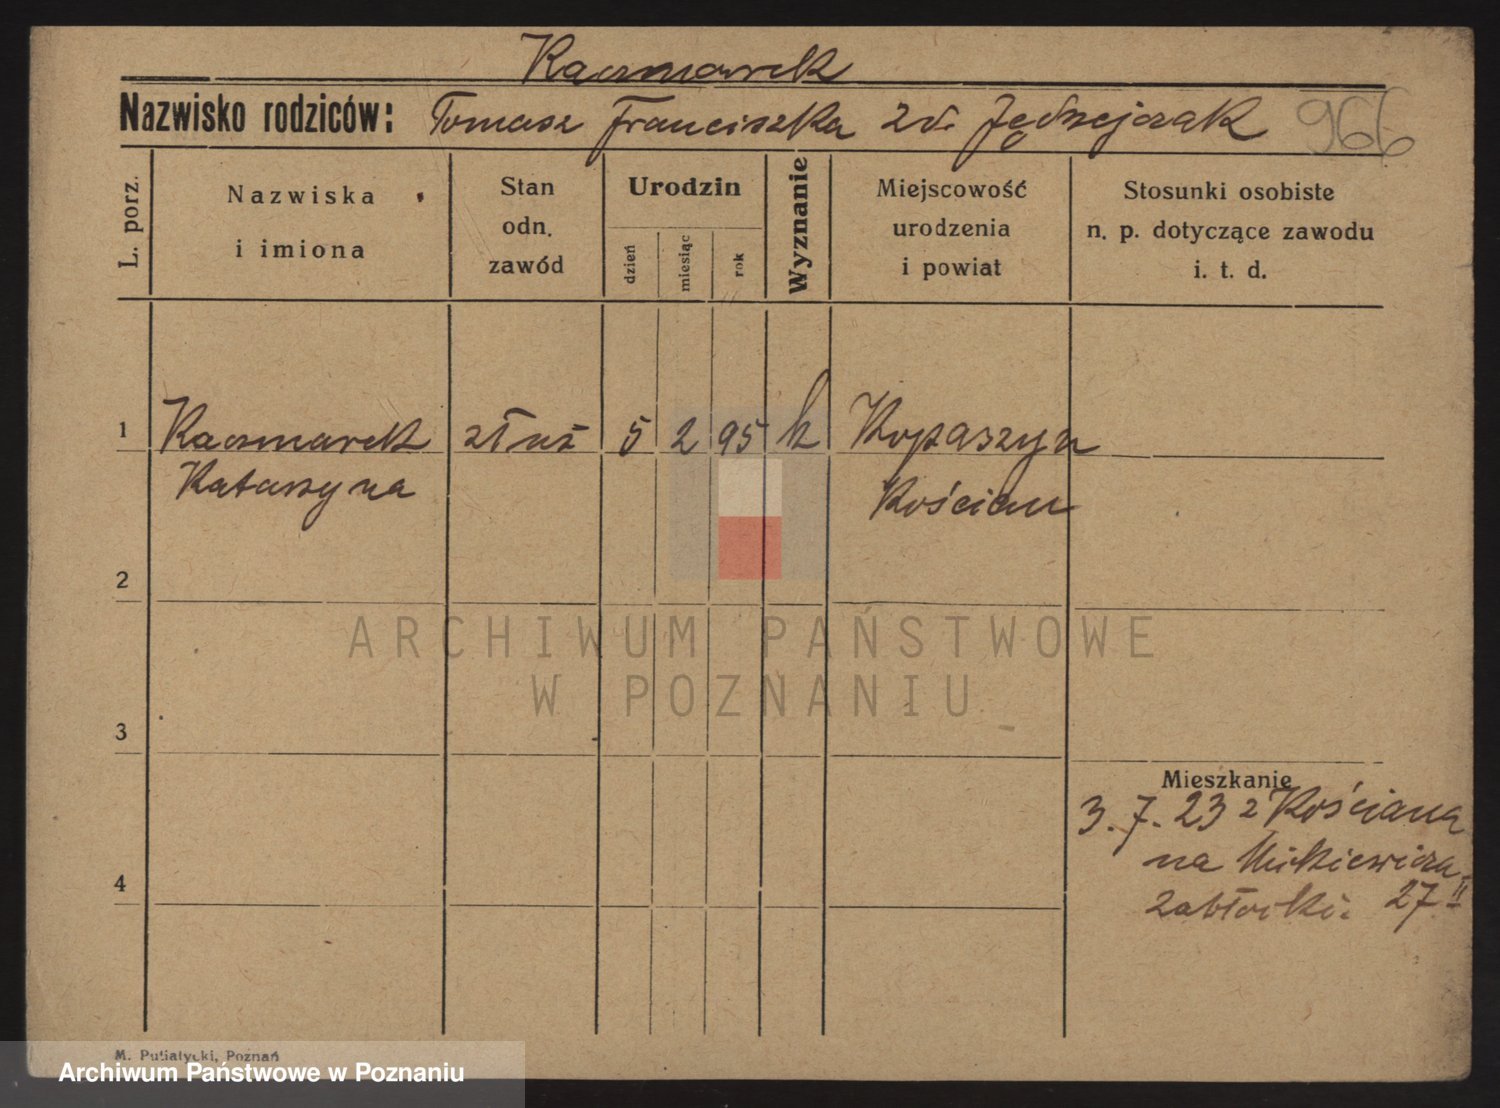 Kaczmarek
Nazwisko rodziców: Tomasz Franciszka zd. Jędrzejczak 966
L. porz.
Nazwiska
i imiona
Stan
odn.
zawód
Urodzin
dzień
miesiąc
rok
Wyznanie
Miejscowość
urodzenia
i powiat
Stosunki osobiste
n. p. dotyczące zawodu
i. t. d.
1 Kaczmarek służ 5 2 95 k Kopaszyn
Katarzyna Kościan
2
ARCHIWUM PAŃSTWOWE
W POZNANIU
3
Mieszkanie
3. 7. 23 z Kościana
4 na Mickiewicza
27 II
M. Putiatycki, Poznań
Archiwum Państwowe w Poznaniu